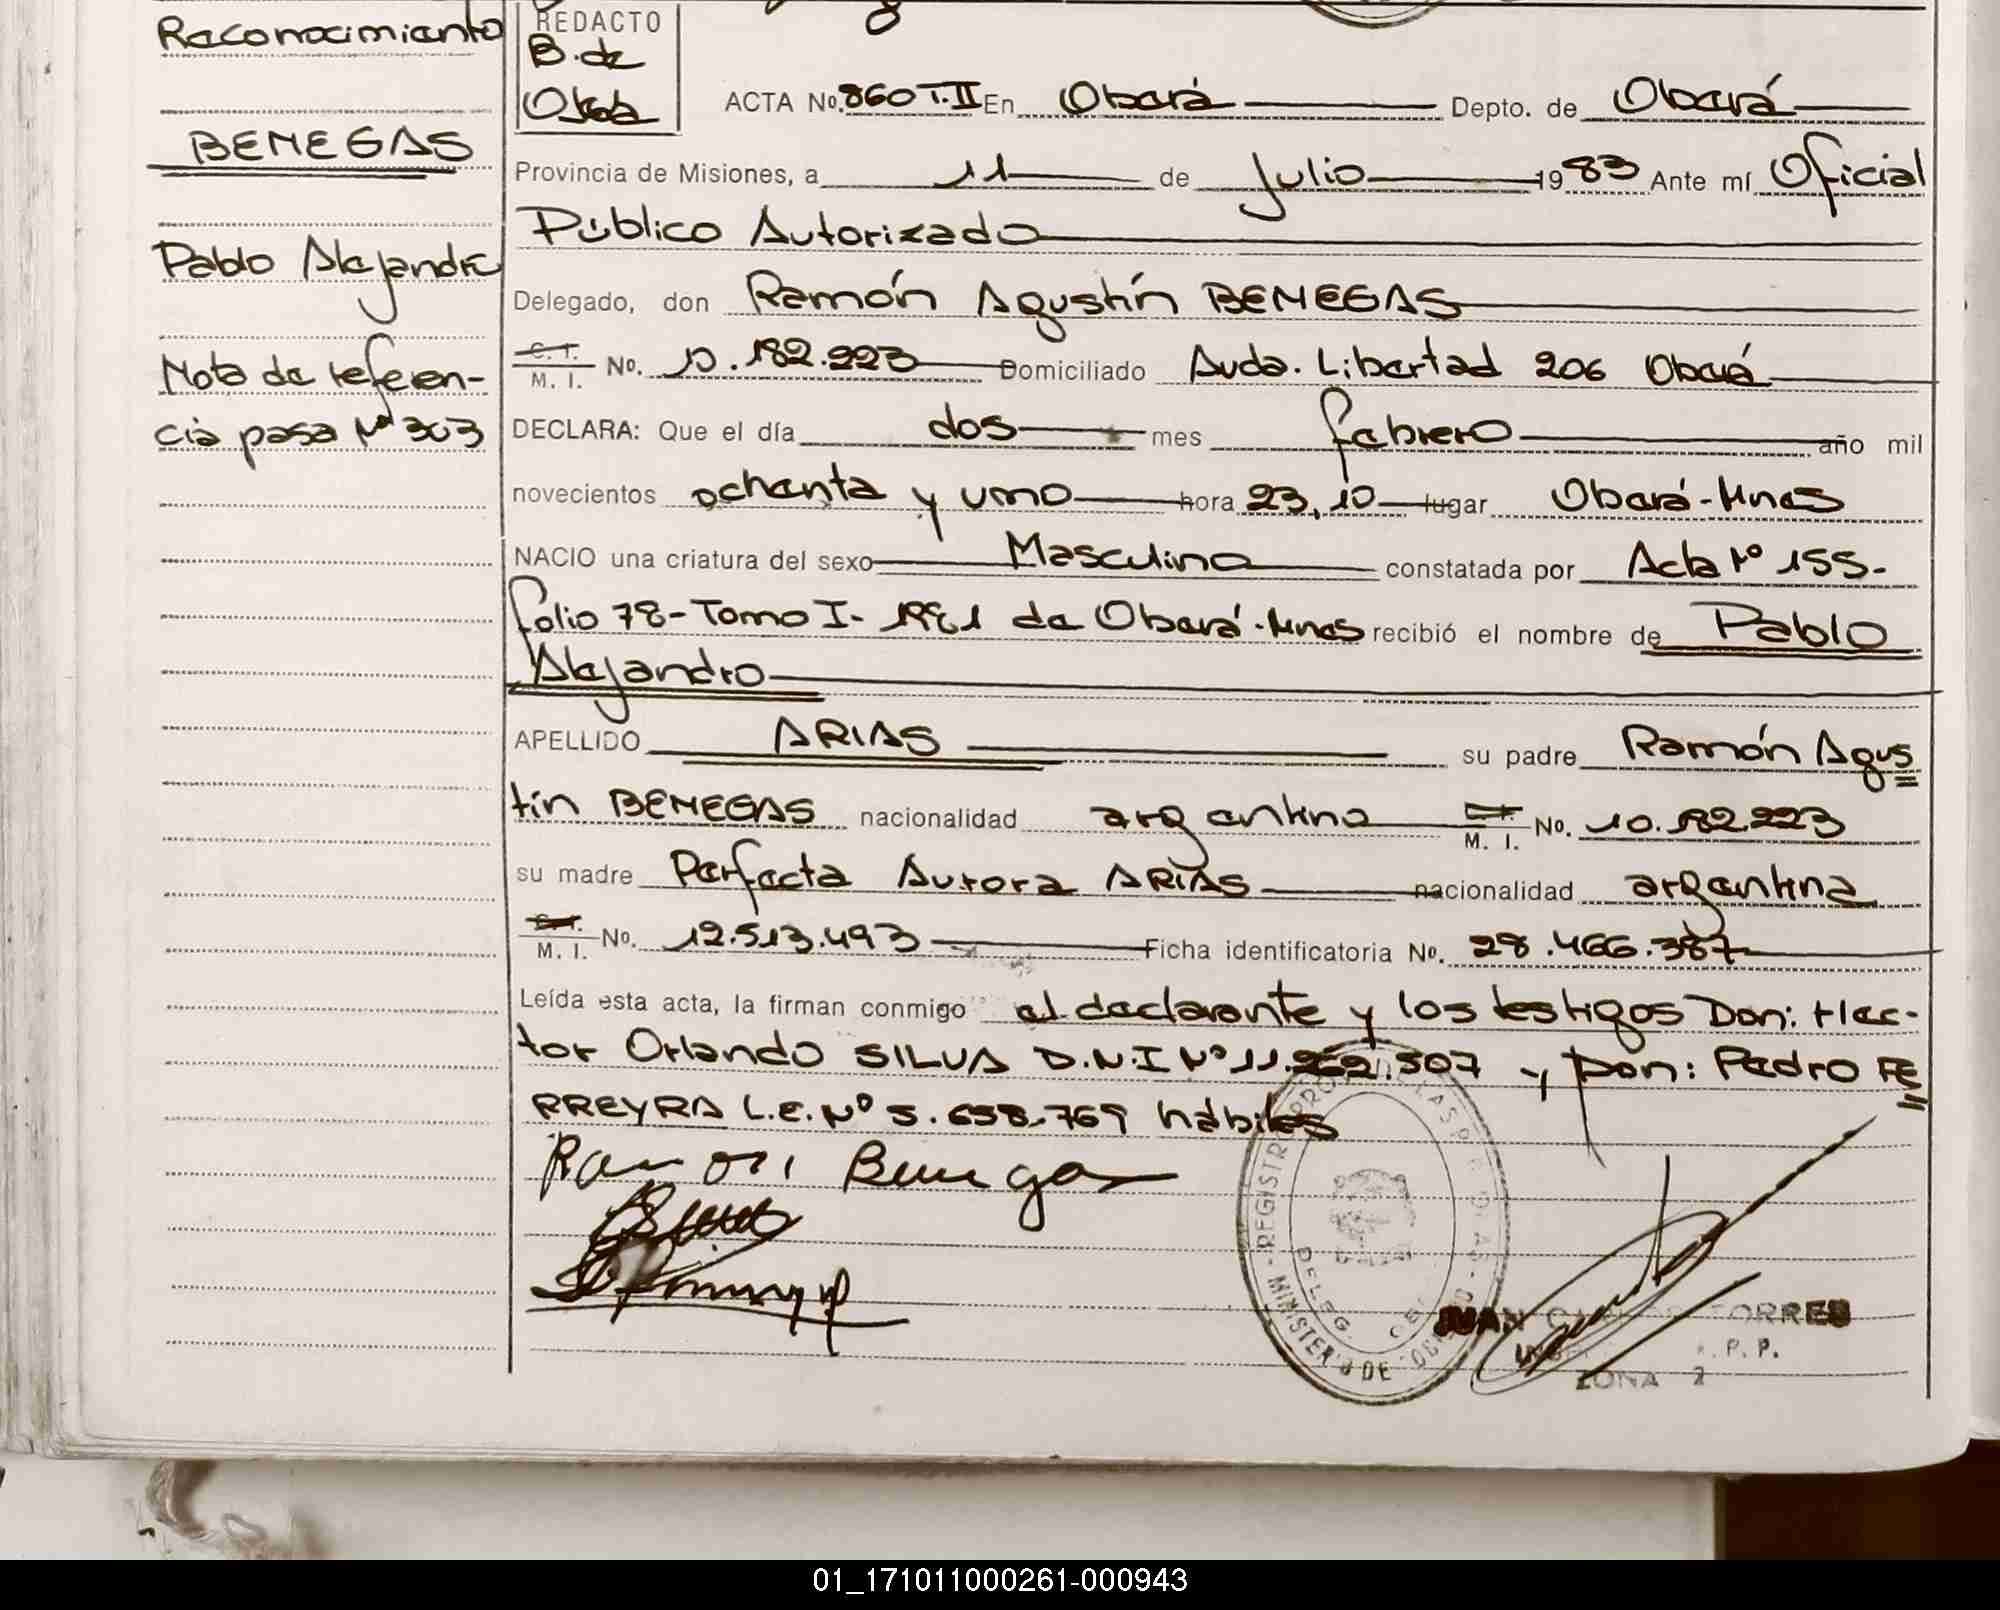 Reconocimiento
BENEGAS
Pablo Alejandro
Nota de referen-
cia pasa Nº 303
REDACTO
B. de
ACTA No. 860 T.II En Oberá Depto. de Oberá
Provincia de Misiones, a 11 de Julio 1983 Ante mí Oficial
Público Autorizado
Delegado, don Ramón Agustín BENEGAS
C. I.
M. I. No. 10.182.223 Domiciliado Avda. Libertad 206 Oberá
DECLARA: Que el día dos mes febrero año mil
novecientos ochenta y uno hora 23,10 lugar Oberá-Mnes
NACIO una criatura del sexo Masculino constatada por Acta Nº 155-
folio 78-Tomo I- 1981 de Oberá-Mnes recibió el nombre de Pablo
Alejandro
APELLIDO ARIAS su padre Ramón Agus
tín BENEGAS nacionalidad argentino M. I. No. 10.182.223
su madre Perfecta Aurora ARIAS nacionalidad argentina
M. I. No. 12.513.493 Ficha identificatoria No. 28.466.387
Leída esta acta, la firman conmigo el declarante y los testigos Don: Hec-
tor Orlando SILVA D.N.I Nº 11.262.507 y Don: Pedro FE
RREYRA L.E. Nº 5.658.769 hábiles
Ramon Benegas
REGISTRO PRO LAS P
DELEG. OBE
MINISTERIO DE GOB
JUAN TORRES
P. P.
ZONA 2
01_171011000261-000943